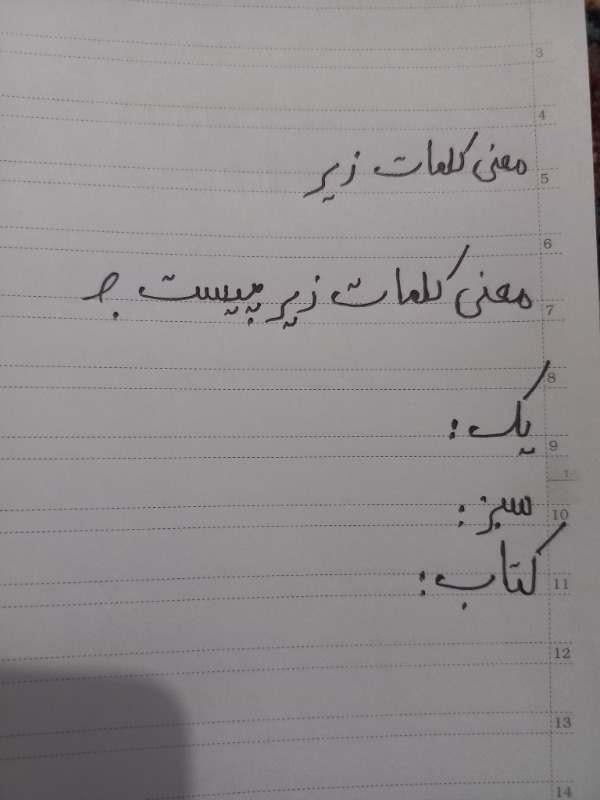 معنی کلمات زیر
معنی کلمات زیر چیست ؟
یک :
سبز :
کتاب :
3
4
5
6
7
8
9
10
11
12
13
14